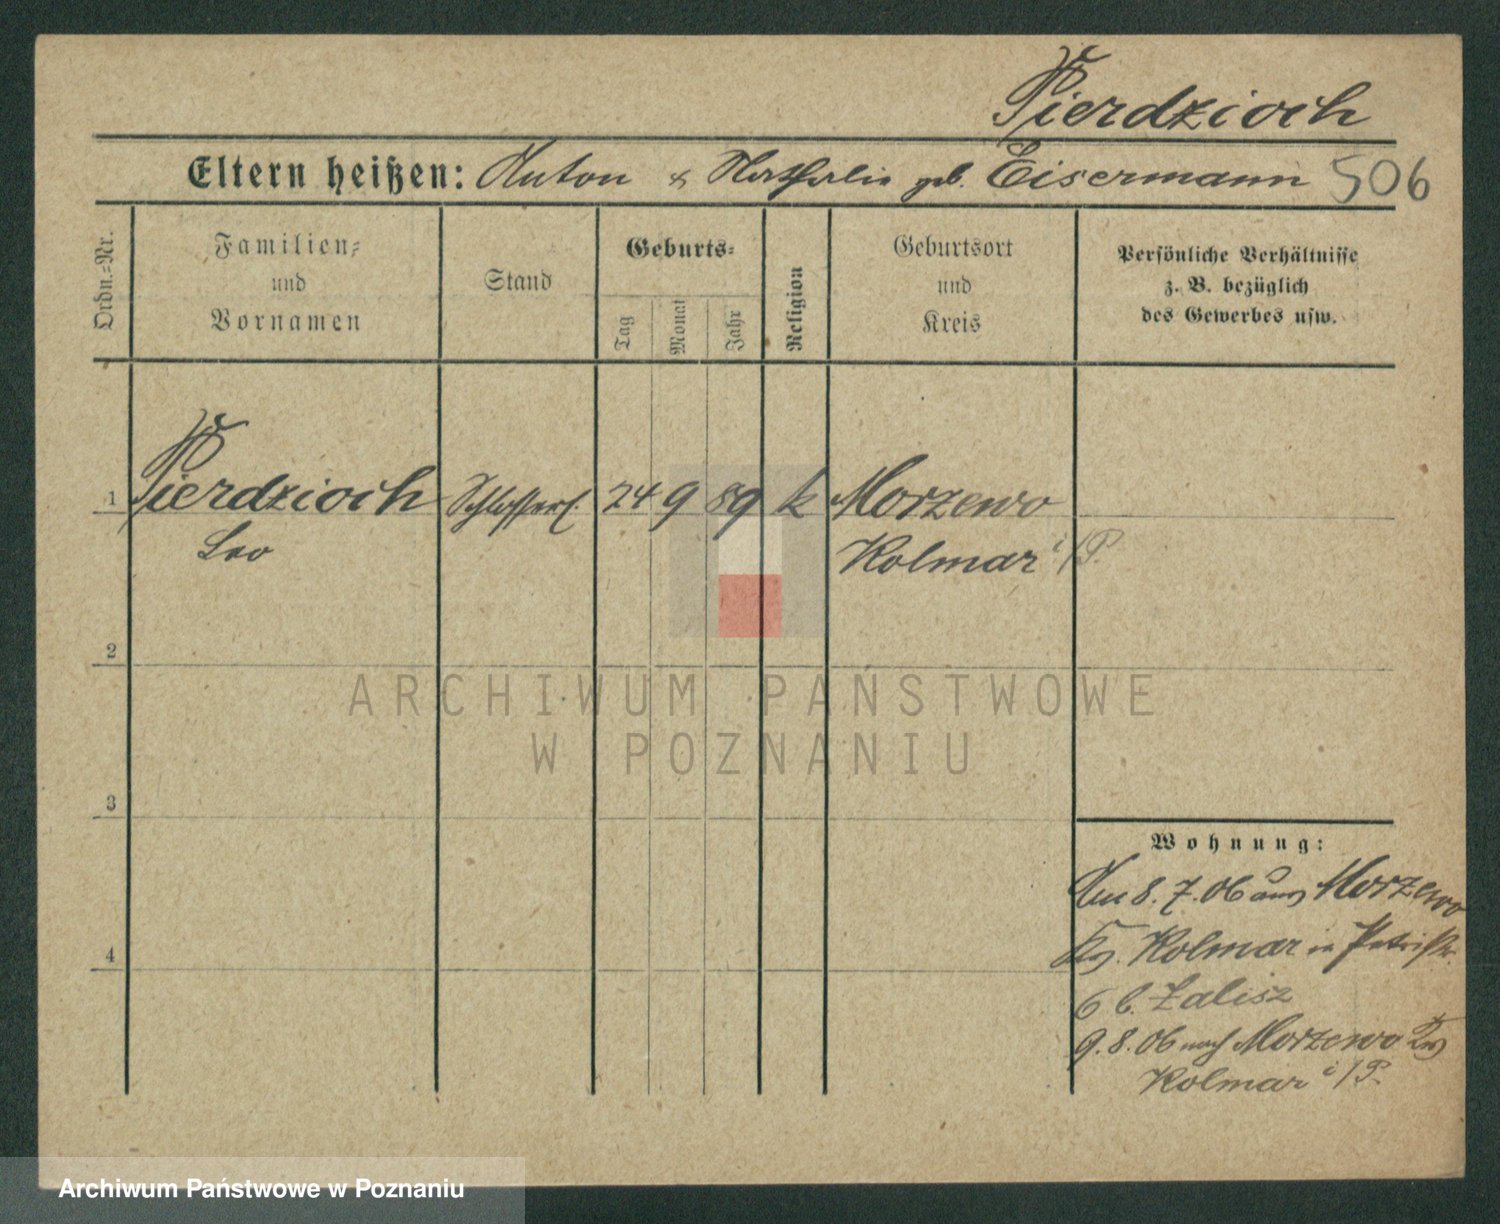 Pierdzioch
Eltern heißen: Anton & Nathalie geb. Eisermann 506
Ordn.-Nr.
Familien-
und
Vornamen
Stand
Geburts-
Tag
Monat
Jahr
Religion
Geburtsort
und
Kreis
Persönliche Verhältnisse
z. B. bezüglich
des Gewerbes usw.
1 Pierdzioch Schlosserl. 24 9 89 k Morzewo
Leo Kolmar i/P.
2
ARCHIWUM PAŃSTWOWE
W POZNANIU
3
Wohnung:
Am 8.7.06 aus Morzewo
Krs. Kolmar in Petristr.
4
6 b. Zalisz
9.8.06 nach Morzewo Krs
Kolmar i/P.
Archiwum Państwowe w Poznaniu